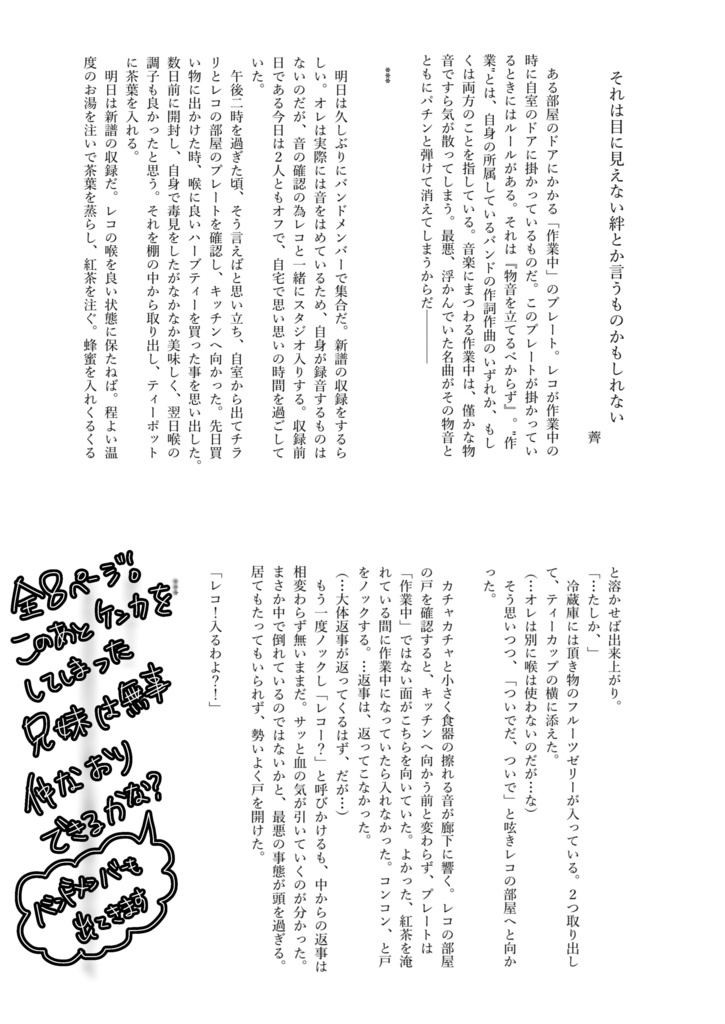 それは目に見えない絆とか言うものかもしれない
薺
ある部屋のドアにかかる「作業中」のプレート。レコが作業中の
時に自室のドアに掛かっているものだ。このプレートが掛かってい
るときにはルールがある。それは『物音を立てるべからず』。"作
業"とは、自身の所属しているバンドの作詞作曲のいずれか、もし
くは両方のことを指している。音楽にまつわる作業中は、僅かな物
音ですら気が散ってしまう。最悪、浮かんでいた名曲がその物音と
ともにパチンと弾けて消えてしまうからだ――――
***
明日は久しぶりにバンドメンバーで集合だ。新譜の収録をするら
しい。オレは実際には音をはめているため、自身が録音するものは
ないのだが、音の確認の為レコと一緒にスタジオ入りする。収録前
日である今日は２人ともオフで、自宅で思い思いの時間を過ごして
いた。
午後二時を過ぎた頃、そう言えばと思い立ち、自室から出てチラ
リとレコの部屋のプレートを確認し、キッチンへ向かった。先日買
い物に出かけた時、喉に良いハーブティーを買った事を思い出した。
数日前に開封し、自身で毒見をしたがなかなか美味しく、翌日喉の
調子も良かったと思う。それを棚の中から取り出し、ティーポット
に茶葉を入れる。
明日は新譜の収録だ。レコの喉を良い状態に保たねば。程よい温
度のお湯を注いで茶葉を蒸らし、紅茶を注ぐ。蜂蜜を入れくるくる
と溶かせば出来上がり。
「…たしか、」
冷蔵庫には頂き物のフルーツゼリーが入っている。２つ取り出し
て、ティーカップの横に添えた。
(…オレは別に喉は使わないのだが…な)
そう思いつつ、「ついでだ、ついで」と呟きレコの部屋へと向か
った。
カチャカチャと小さく食器の擦れる音が廊下に響く。レコの部屋
の戸を確認すると、キッチンへ向かう前と変わらず、プレートは
「作業中」ではない面がこちらを向いていた。よかった、紅茶を淹
れている間に作業中になっていたら入れなかった。コンコン、と戸
をノックする。…返事は、返ってこなかった。
(…大体返事が返ってくるはず、だが…)
もう一度ノックし「レコー？」と呼びかけるも、中からの返事は
相変わらず無いままだ。サッと血の気が引いていくのが分かった。
まさか中で倒れているのではないかと、最悪の事態が頭を過ぎる。
居てもたってもいられず、勢いよく戸を開けた。
「レコ！入るわよ？！」
***
全8ページ。
このあと ケンカを
してしまった
兄妹は無事
仲なおり
できるかな？